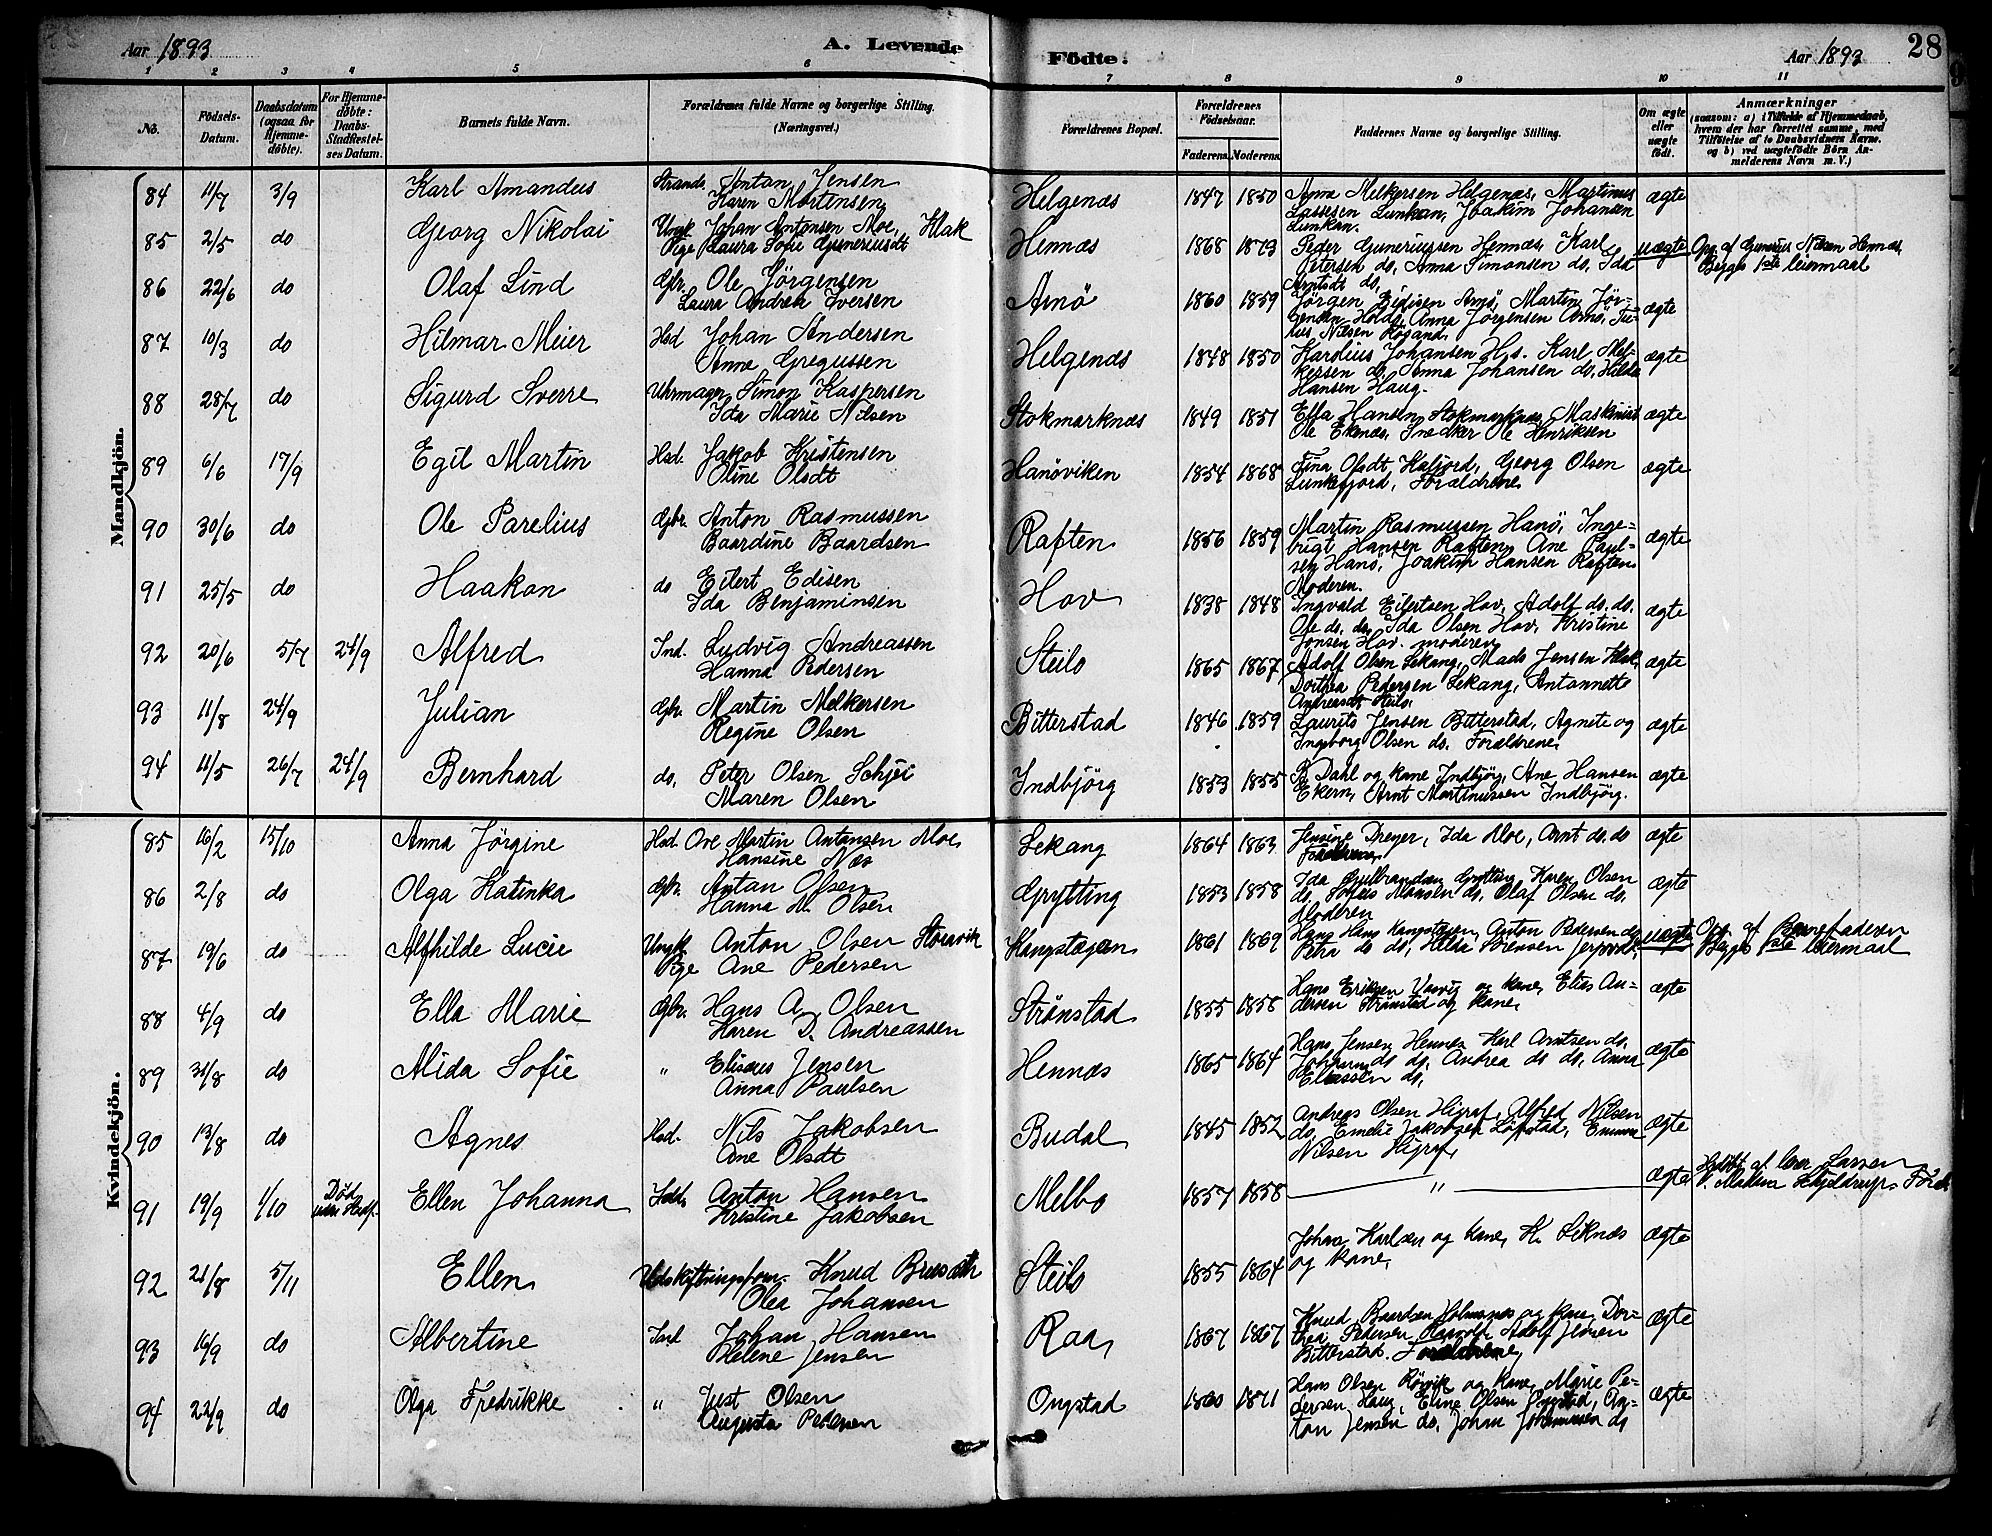 Aar 1893 A. Levende Fødte. Aar 1893 28
1 2 3 4 5 6 7 8 9 10 11
No. Fødsels-Datum. Daabsdatum (ogsaa for Hjemme-døbte). For Hjemme-døbte: Daabs-Stadfæstel-ses Datum. Barnets fulde Navn. Forældrenes fulde Navne og borgerlige Stilling. (Næringsvei.) Forældrenes Bopæl. Forældrenes Fødselsaar. Faderens. Moderens. Faddernes Navne og borgerlige Stilling. Om ægte eller uægte født. Anmærkninger (saasom: a) i Tilfælde af Hjemmedaab, hvem der har forrettet samme, med Tilføielse af to Daabsvidners Navne. og b) ved uægtefødte Børn An-melderens Navn m.V.)
Mandkjøn.
84 11/7 3/9 Karl Amandus Strands. Anton Jensen
Karen Mortensen Helgenæs 1847 1850 Anne Melkersen Helgenæs, Martinus
Lassesen Lunkan, Joakim Johansen
Lunkan. ægte
85 2/5 do Georg Nikolai Ungk Johan Antonsen Moe, Klak
Pige Laura Sofie Guneriusdt Hennæs 1868 1873 Peder Guneriussen Hennæs, Karl
Petersen do, Anna Simonsen do, Ida
Arntsdt do, uægte Opg. af Gunerius Nilsen Hennæs,
Begges 1ste leiermaal
86 22/6 do Olaf Lind Gbr. Ole Jørgensen
Laura Andrea Iversen Arnø 1860 1859 Jørgen Edisen Arnø, Martin Jør-
gensen Holde, Anna Jørgensen Arnø, Ju-
lius Nilsen Røsand. ægte
87 10/3 do Hilmar Meier Hsd Johan Andersen
Anne Gregussen Helgenæs 1848 1850 Kardius Johansen H.s. Karl Mel-
kersen do, Anna Johansen do, Hilda
Hansen Haug. ægte
88 28/7 do Sigurd Sverre Uhrmager Simon Kaspersen
Ida Marie Nilsen Stokmarknæs 1849 1851 Ella Hansen Stokmarknæs, Maskinist
Ole Ekenæs, Snedker Ole Henriksen ægte
89 6/6 17/9 Egil Martin Hsd. Jakob Kristensen
Oline Olsdt Hanøviken 1854 1868 Fina Olsdt Kaljord, Georg Olsen
Lunkefjord, Forældrene ægte
90 30/6 do Ole Parelius Gbr. Anton Rasmussen
Baardine Baardsen Raften 1856 1859 Martin Rasmussen Hanø, Inge-
brigt Hansen Raften, Ane Paul-
sen Hanø, Joakim Hansen Raften
Moderen. ægte
91 25/5 do Haakon do Eilert Edisen
Ida Benjaminsen Hov 1838 1848 Ingvald Eilertsen Hov, Adolf do. do.
Ole do. do, Ida Olsen Hov, Kristine
Jonsen Hov. moderen ægte
92 20/6 5/7 24/9 Alfred Ind. Ludvig Andreassen
Hanna Pedersen Steilo 1865 1867 Adolf Olsen Sekang, Mads Jensen Klak,
Dorthea Pedersen Sekang, Antonnette
Andreasdt Steilo. ægte
93 11/8 24/9 Julian Gbr. Martin Melkersen
Regine Olsen Bitterstad 1846 1859 Laurits Jensen Bitterstad, Agnete og
Ingeborg Olsen do. Forældrene ægte
94 11/5 26/7 24/9 Bernhard do. Peter Olsen Schjei
Maren Olsen Indbjørg 1853 1855 P. Dahl og kone Indbjørg, Ane Hansen
Ekern, Arnt Martinussen Indbjørg. ægte
Kvindekjøn.
85 16/2 15/10 Anna Jørgine Hsd. Ove Martin Antonsen Moe,
Hansine Næs Sekang 1864 1863 Jensine Dreyer, Ida Moe, Arnt do. do
Forældrene, ægte
86 2/8 do Olga Katinka Gbr. Anton Olsen
Hanna M. Olsen Grytting 1853 1858 Ida Gulbrandsen Grytting, Karen Olsen
do, Hansen do, Olaf Olsen do,
Moderen ægte
87 19/6 do Alfhilde Lucie Ungk Anton Olsen Storvik
Pige Ane Pedersen 1861 1869 Anton Pedersen do,
Petra do do, Hilda Sørensen uægte Opg. af Barnefaderen
Begges 1ste leiermaal
88 4/9 do Ella Marie Gbr. Hans A. Olsen
Karen D. Andreassen Strønstad 1855 1858 Hans Eriksen og kone, Elias An-
dersen Strønstad og kone, ægte
89 31/8 do Alida Sofie " Elisæus Jensen
Anna Paulsen Hennæs 1865 1864 Hans Jensen Hennæs Karl Arntsen do,
Johanna do do, Andrea do do, Anna
Eliassen do, ægte
90 13/8 do Agnes Hsd. Nils Jakobsen
Ane Olsdt Budal 1845 1852 Andreas Olsen Higraf, Alfred Nilsen
do, Emelie Jakobsen, Emma
Nilsen Higraf, ægte
91 19/9 1/10 Død Ellen Johanna Ind. Anton Hansen
Kristine Jakobsen Melbo 1857 1858 " ægte Larsen
92 21/8 5/11 Ellen Udskiftningsform. Knud
Olea Johansen Steilo 1855 1864 Johan Karlsen og kone, K. Leknæs
og kone, ægte
93 16/9 do Albertine Ind Johan Hansen
Helene Jensen Raa, 1867 1867 Knud Baardsen Holmsnæs og kone, Dor-
thea Pedersen, Adolf Jensen
Bitterstad. Forældrene, ægte
94 22/9 do Olga Fredrikke " Just Olsen
Augusta Pedersen Ongstad 1860 1871 Hans Olsen Rørvik og kone, Marie Pe-
dersen Haug, Eline Olsen Ongstad, An-
ton Jensen do, Johan Johannesen do ægte